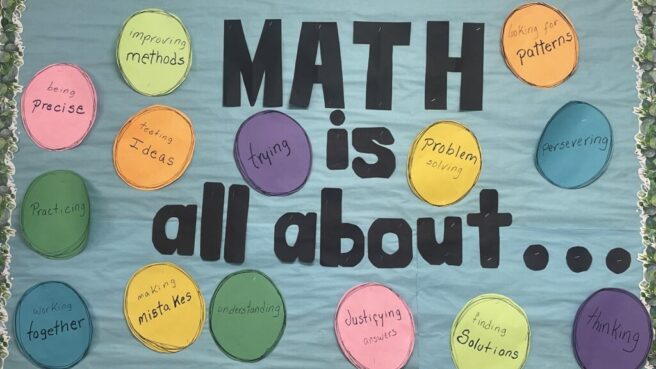 MATH
is
all about...
improving
methods
looking for
patterns
being
Precise
testing
Ideas
trying
Problem
solving
persevering
Practicing
working
together
making
mistakes
understanding
Justifying
answers
finding
Solutions
thinking